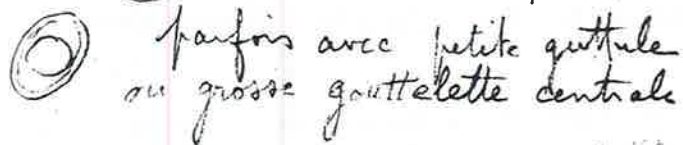 parfois avec petite guttule
ou grosse gouttelette centrale